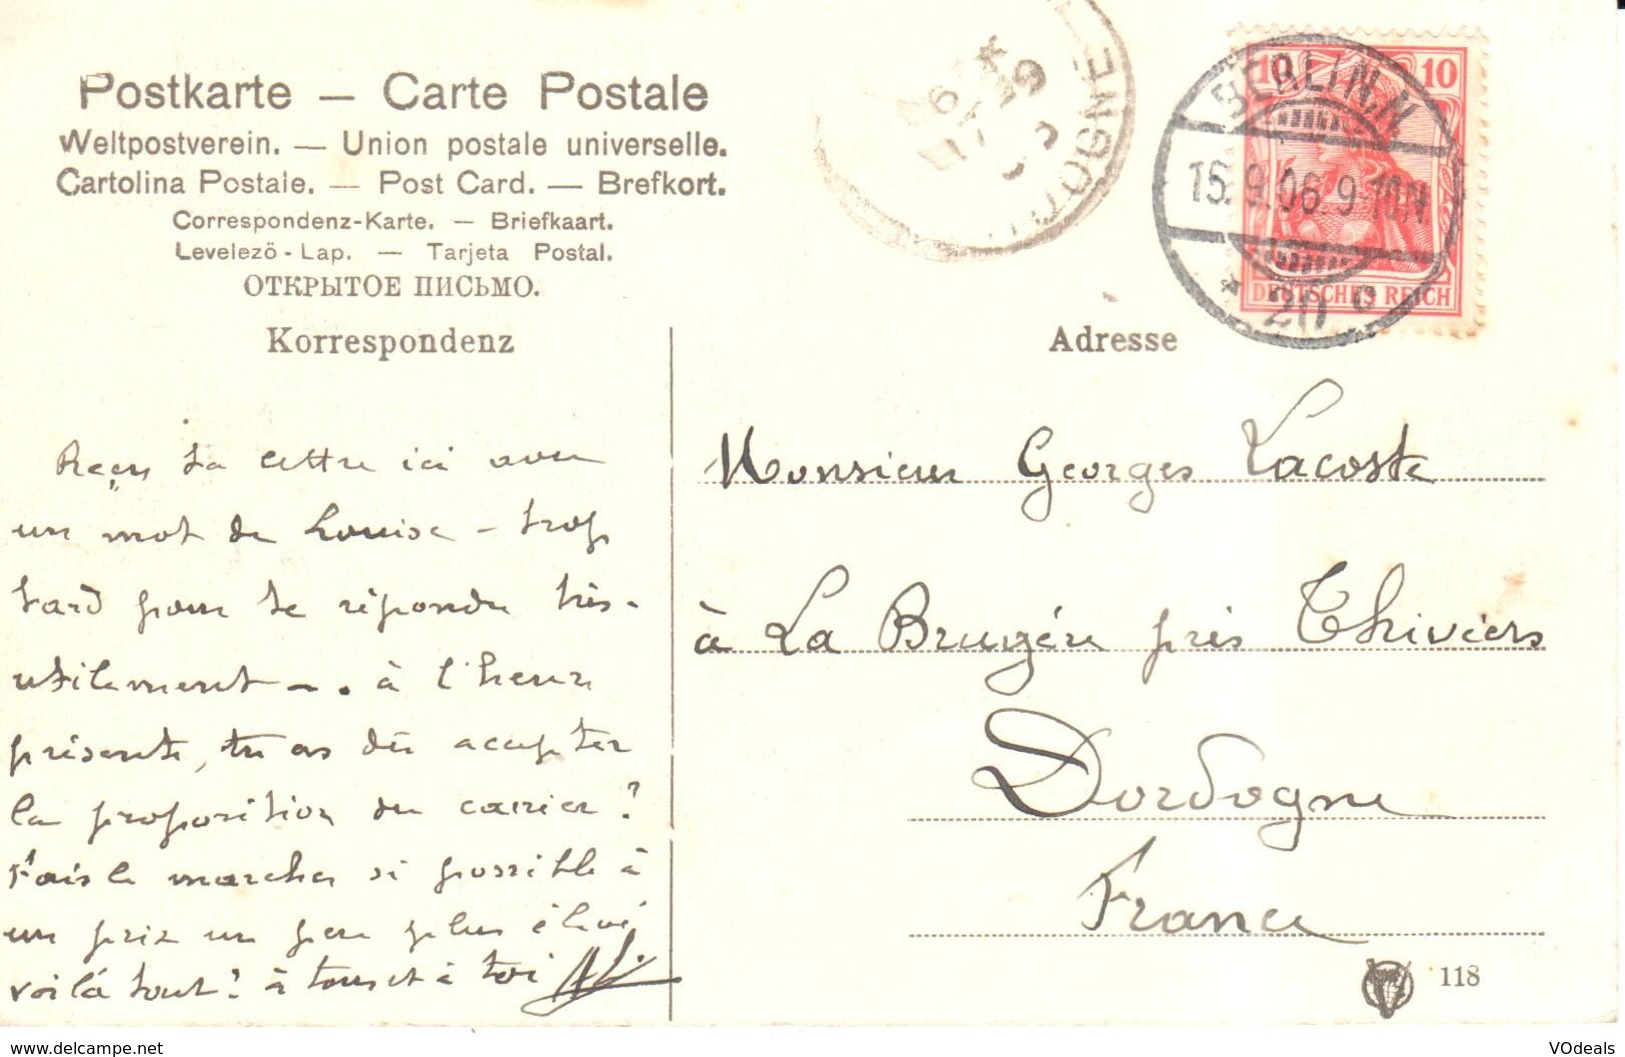 Postkarte — Carte Postale
Weltpostverein. — Union postale universelle.
Cartolina Postale. — Post Card. — Brefkort.
Correspondenz-Karte. — Briefkaart.
Levelezö-Lap. — Tarjeta Postal.
ОТКРЫТОЕ ПИСЬМО.
Korrespondenz
Adresse
17-9
DOGNE
10 10
DEUTSCHES REICH
BERLIN,N
15.9.06.9-10N.
* 20 c
Reçu ta lettre ici avec
un mot de Louise – trop
tard pour te répondre très-
utilement –. à l'heure
présente, tu as dû accepter
la proposition du carrier?
Fais le marcher si possible à
un prix un peu plus élevé
voilà tout? à tous et à toi
Monsieur Georges Lacoste
à La Brugère près Thiviers
Dordogne
France
118
www.delcampe.net
VOdeals